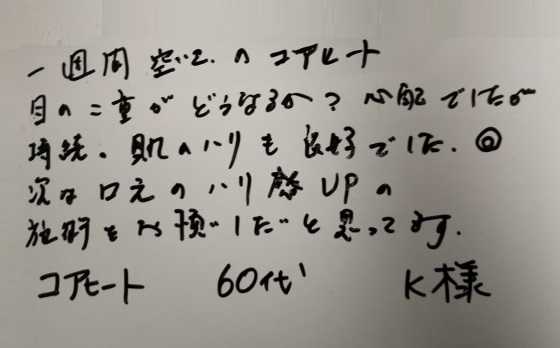 一週間空いてのコアヒート
目の二重がどうなるか?心配でしたが
持続。肌のハリも良好でした。◎
次は口元のハリ感UPの
施術をお願いしたいと思ってます。
コアヒート 60代 K様